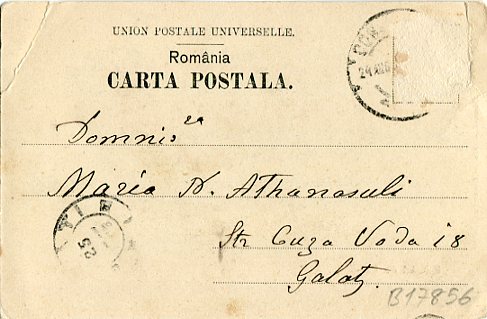 UNION POSTALE UNIVERSELLE.
România
CARTA POSTALA.
Domniei
Maria N. Athanasuli
Str Cuza Voda 18
Galatz
B17856